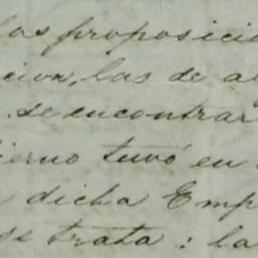 las proposicio
cion, las de a
se encontrar
ierno tuvó en
dicha Emp
se trata: la